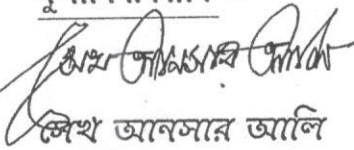 শেখ আনসার আলি
শেখ আনসার আলি